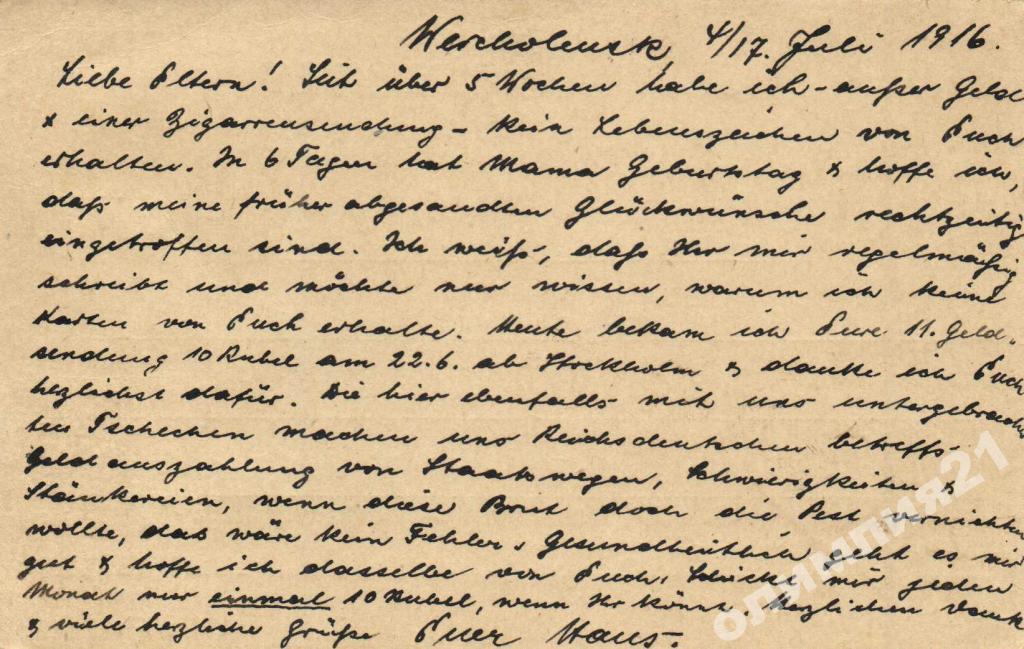 Wercholensk, 4/17. Juli 1916.
Liebe Eltern! Seit über 5 Wochen habe ich – außer Geld
& einer Zigarrensendung – kein Lebenszeichen von Euch
erhalten. In 6 Tagen hat Mama Geburtstag & hoffe ich,
daß meine früher abgesandten Glückwünsche rechtzeitig
eingetroffen sind. Ich weiß, daß Ihr mir regelmäßig
schreibt und möchte nur wissen, warum ich keine
Karten von Euch erhalte. Heute bekam ich Eure 11. Geld-
sendung 10 Rubel am 22.6. ab Stockholm & danke ich Euch
herzlichst dafür. Die hier ebenfalls mit uns untergebrach-
ten Tschechen machen uns Reichsdeutschen betreffs
Geldauszahlung von Staatswegen, Schwierigkeiten &
Stänkereien, wenn diese Brut doch die Pest vernichten
wollte, das wäre kein Fehler. Gesundheitlich geht es mir
gut & hoffe ich dasselbe von Euch. Schickt mir jeden
Monat nur einmal 10 Rubel, wenn Ihr könnt. Herzlichen Dank
& viele herzliche Grüße Euer Hans.
олимпия21